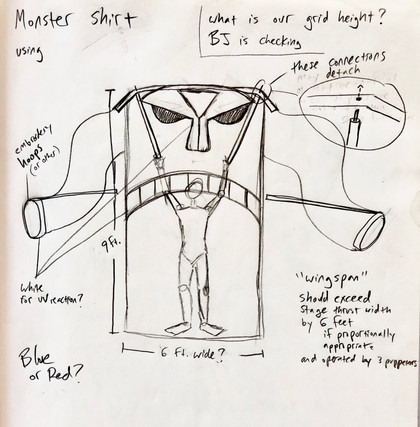 Monster shirt
using
what is our grid height?
BJ is checking
these connections
detach
embroidery
hoops
(or other)
9 ft.
white
for UV reaction?
"wingspan"
should exceed
stage thrust width
by 6 feet
if proportionally
appropriate
and operated by 3 puppeteers
6 ft. wide?
Blue
or Red?